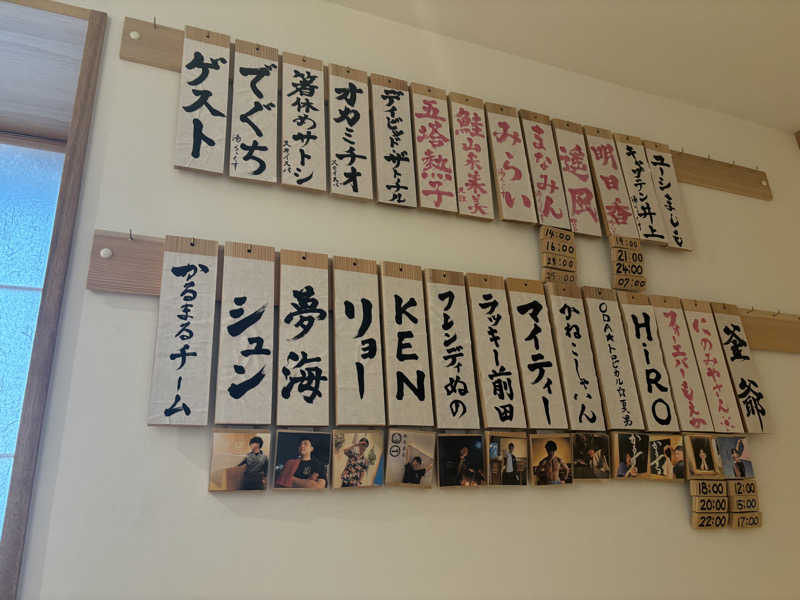 ゲスト
でぐち
箸休めサトシ
スカイスパ
オカミチオ
スカイスパ
デイビッド・ザトーナル
五塔熱子
鮭山未菜美
みらい
まなみん
遥凪
明日香
キャサテン井上
ユーシまじょも
14:00
16:00
19:00
21:00
24:00
07:00
かるまるチーム
シュン
夢海
リョー
KEN
フレンディぬの
ラッキー前田
マイティー
かねこしゃいん
OBA★トロピカル☆夏男
HiRO
フォーエバーもえか
にのみやさん
釜爺
18:00
20:00
22:00
12:00
15:00
17:00